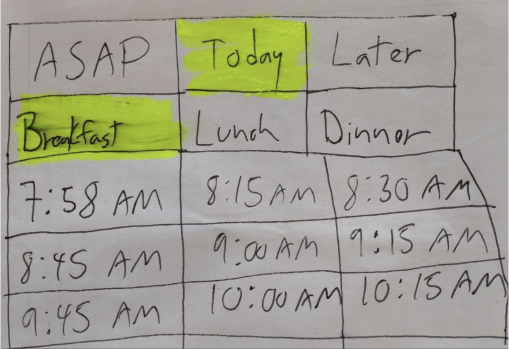 ASAP Today Later
Breakfast Lunch Dinner
7:58 AM 8:15 AM 8:30 AM
8:45 AM 9:00 AM 9:15 AM
9:45 AM 10:00 AM 10:15 AM